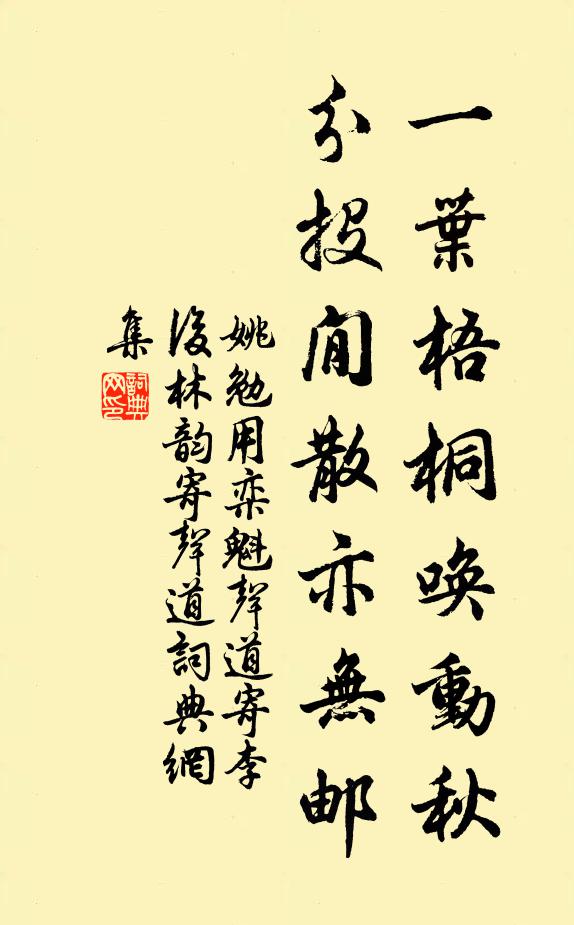 一葉梧桐喚動秋
分投閒散亦無邮
姚勉用奕魁聲道寄李
後林韵寄聲道詞典網
集
詞典
网印